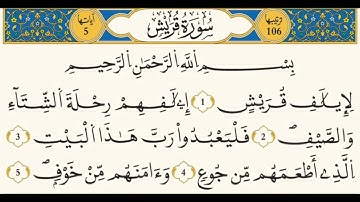 ترتيبها سُورَةُ قُرَيْشٍ آياتها
106 5
بِسْمِ ٱللَّهِ ٱلرَّحْمَٰنِ ٱلرَّحِيمِ
لِإِيلَٰفِ قُرَيْشٍ 1 إِۦلَٰفِهِمْ رِحْلَةَ ٱلشِّتَآءِ
وَٱلصَّيْفِ 2 فَلْيَعْبُدُوا۟ رَبَّ هَٰذَا ٱلْبَيْتِ 3
ٱلَّذِىٓ أَطْعَمَهُم مِّن جُوعٍ 4 وَءَامَنَهُم مِّنْ خَوْفٍۭ 5